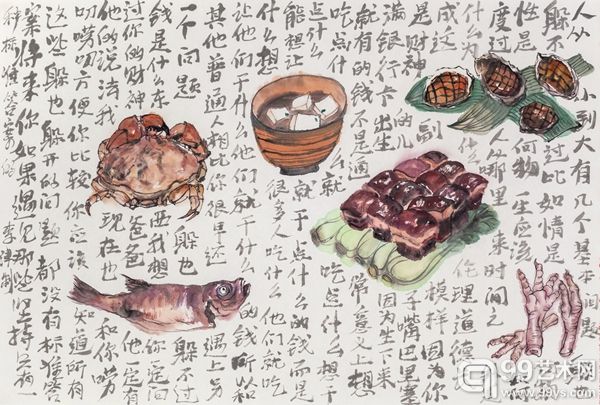 人从小到大有几个基本问题
躲不过比如情是
性是何物一生应该
度过人从那里来时间之
什么为伦理道德
成这副模样因为你
是财神的儿子嘴巴里塞
满银行卡出生因为生下来
就有的钱不是通常意义上想
吃点什么就吃点什么想
点什么就点什么的钱而是
能想让很多人吃什么他们就吃
什么想
让他们干什么他们就干什么的钱所以和
其他普通人相比你很早还遇上另
一个问题躲也躲不过
钱是什么东西我想你一定问
过你的财神爸爸他一定有
他的说法我现在也和你唠
唠叨叨方便你比较你应该知道所有
这些躲也躲不开的问题都没有标准答
案将来你如果遇见那些坚持只有一
种标准答案的 李津制
99艺术网
www.99ys.com